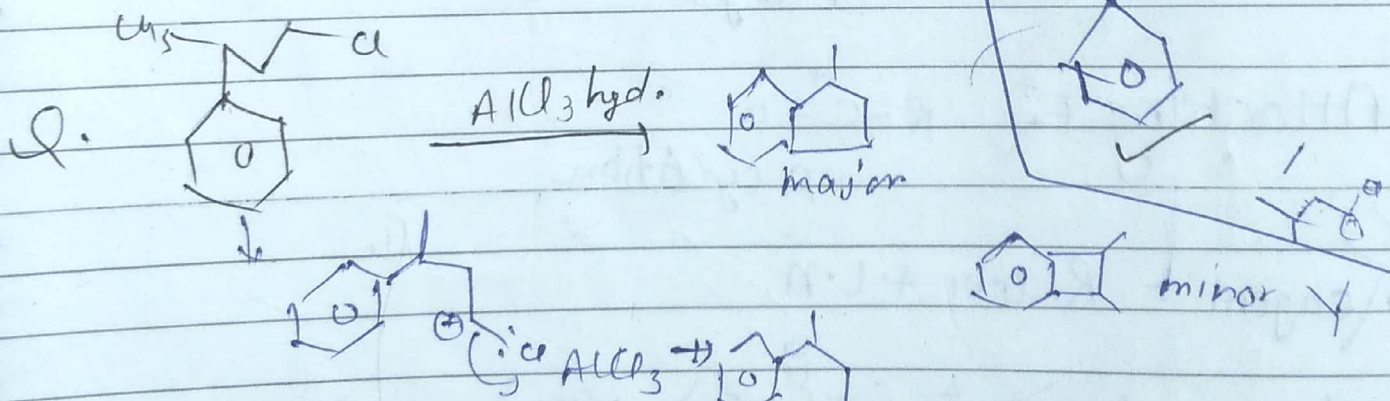 CH₃ Cl
Q. AlCl₃ hyd.
major
minor
⊕ Cl AlCl₃ →